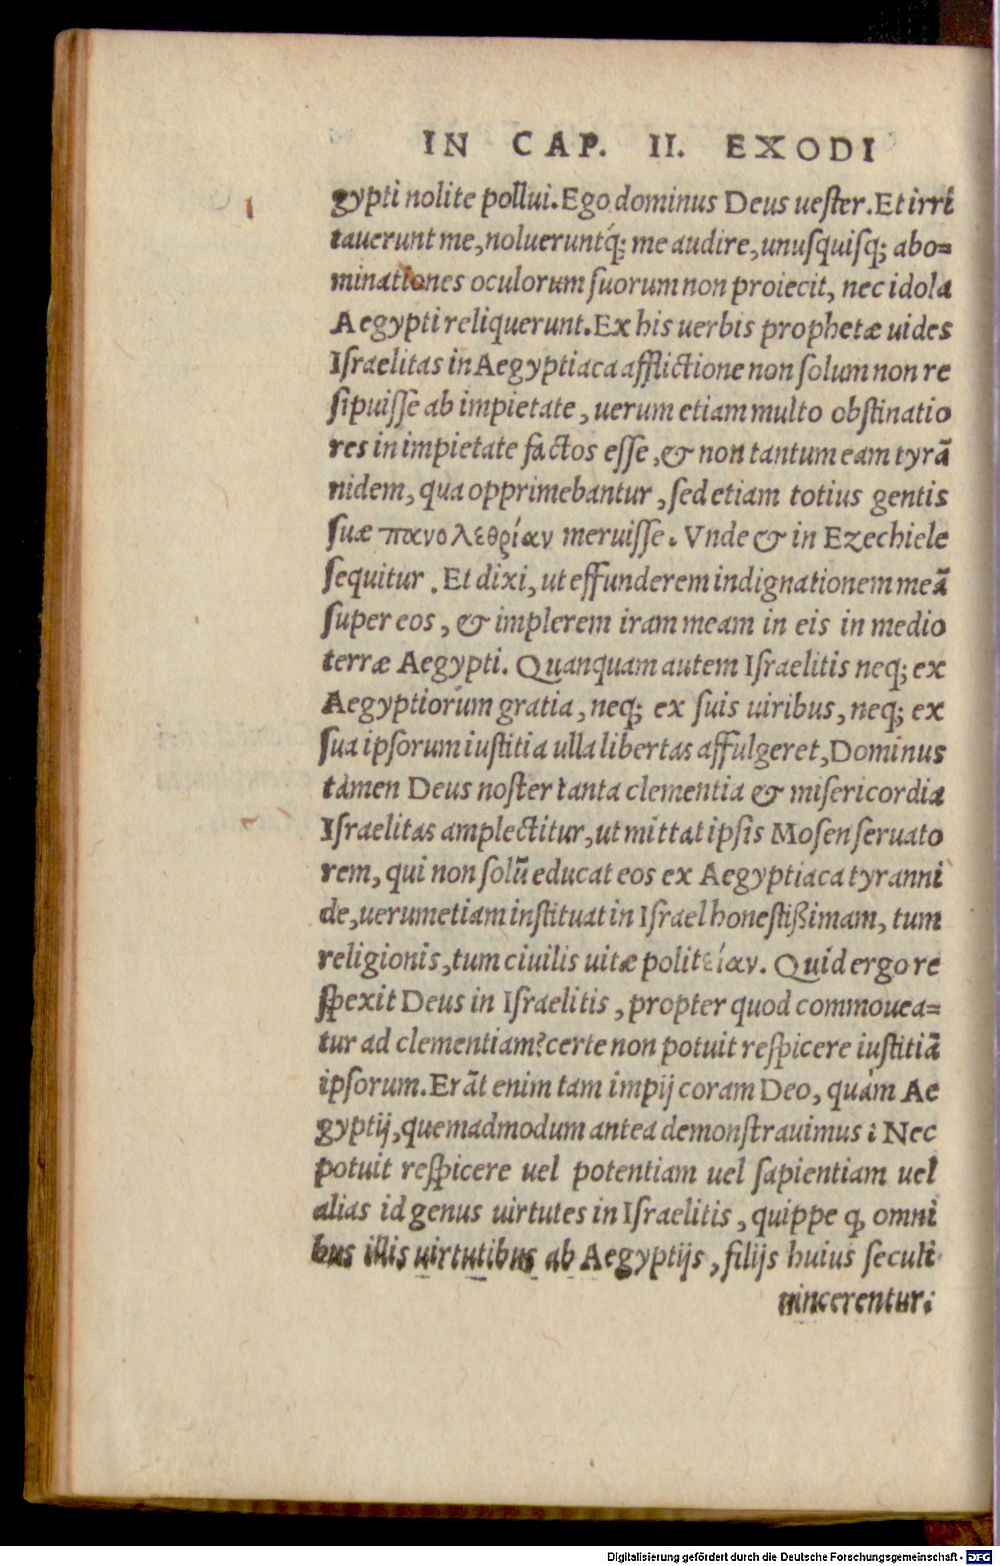 IN CAP. II. EXODI
gypti nolite pollui. Ego dominus Deus uester. Et irri
tauerunt me, nolueruntq́; me audire, unusquisq; abo=
minationes oculorum suorum non proiecit, nec idola
Aegypti reliquerunt. Ex his uerbis prophetæ uides
Israelitas in Aegyptiaca afflictione non solum non re
sipuisse ab impietate, uerum etiam multo obstinatio
res in impietate factos esse, & non tantum eam tyrā
nidem, qua opprimebantur, sed etiam totius gentis
suæ πανολεθρίαν meruisse. Vnde & in Ezechiele
sequitur. Et dixi, ut effunderem indignationem meā
super eos, & implerem iram meam in eis in medio
terræ Aegypti. Quanquam autem Israelitis neq; ex
Aegyptiorum gratia, neq; ex suis uiribus, neq; ex
sua ipsorum iustitia ulla libertas affulgeret, Dominus
tamen Deus noster tanta clementia & misericordia
Israelitas amplectitur, ut mittat ipsis Mosen seruato
rem, qui non solū educat eos ex Aegyptiaca tyranni
de, uerumetiam instituat in Israel honestißimam, tum
religionis, tum ciuilis uitæ politείαν. Quid ergo re
spexit Deus in Israelitis, propter quod commouea=
tur ad clementiam? certe non potuit respicere iustitiā
ipsorum. Erāt enim tam impij coram Deo, quàm Ae
gyptij, quemadmodum antea demonstrauimus: Nec
potuit respicere uel potentiam uel sapientiam uel
alias id genus uirtutes in Israelitis, quippe q̈ omni
bus illis uirtutibus ab Aegyptijs, filijs huius seculi
uincerentur:
Digitalisierung gefördert durch die Deutsche Forschungsgemeinschaft - DFG